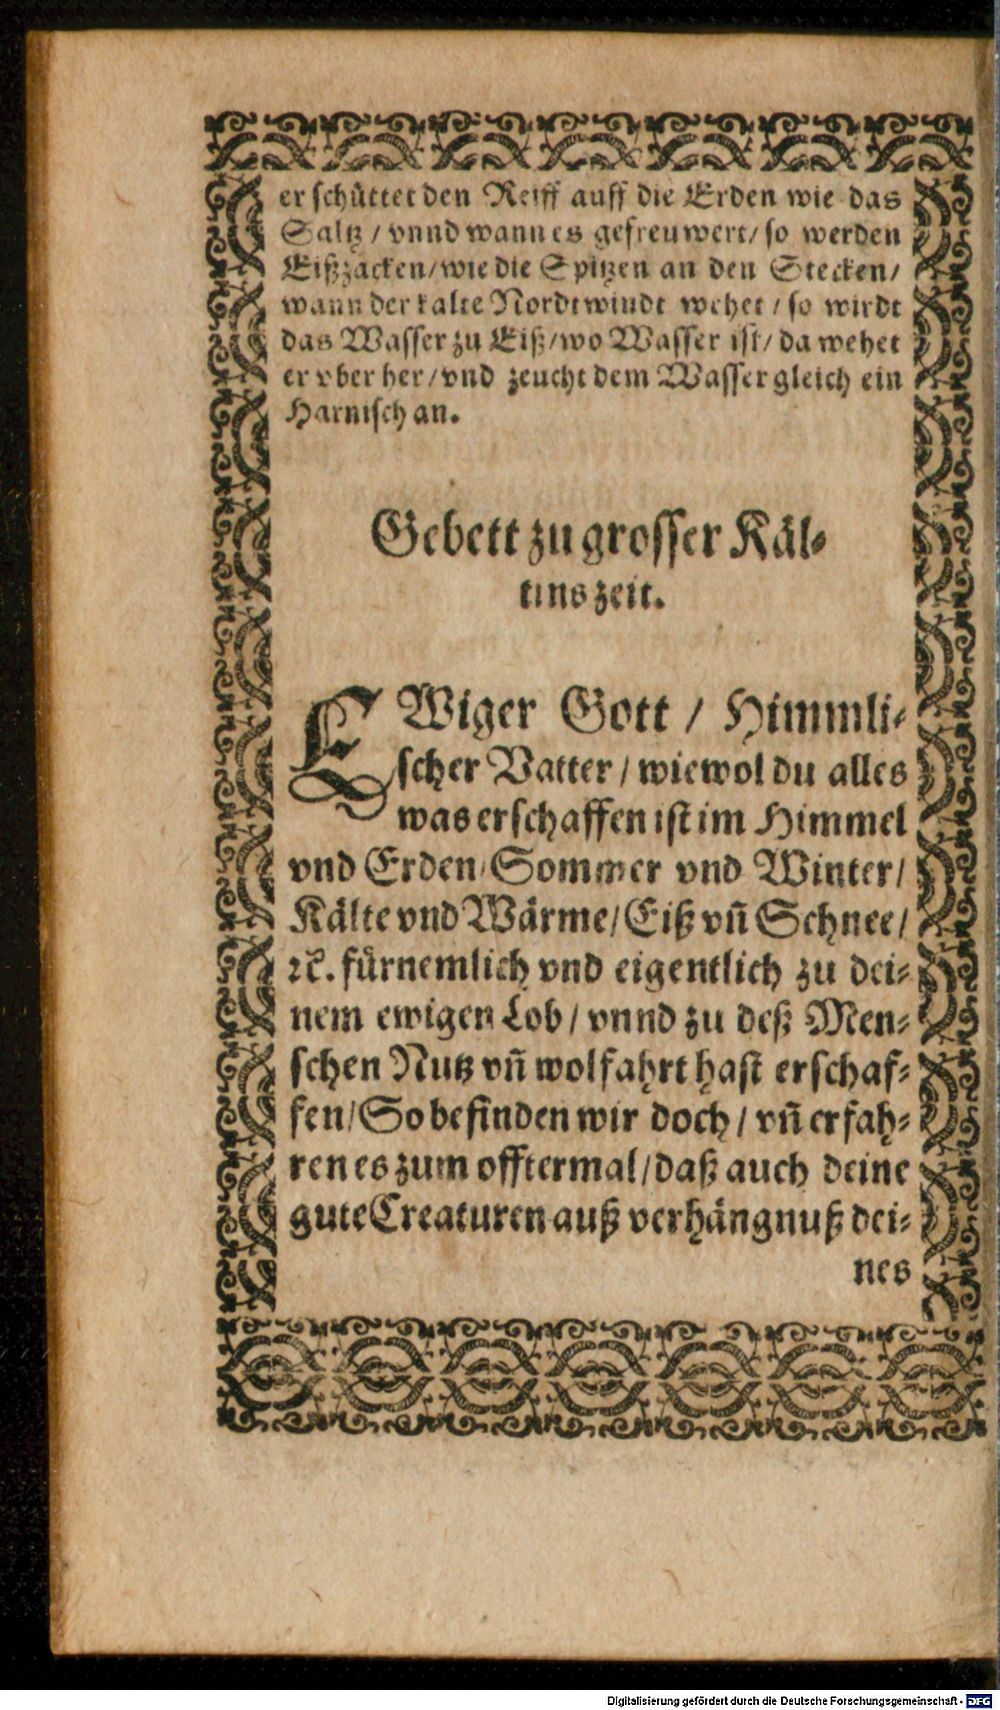 er schüttet den Reiff auff die Erden wie das
Saltz / vnnd wann es gefreuwert / so werden
Eißzacken / wie die Spitzen an den Stecken /
wann der kalte Nordtwindt wehet / so wirdt
das Wasser zu Eiß / wo Wasser ist / da wehet
er vber her / vnd zeucht dem Wasser gleich ein
Harnisch an.
Gebett zu grosser Käl-
tins zeit.
EWiger Gott / Himmli-
scher Vatter / wiewol du alles
was erschaffen ist im Himmel
vnd Erden / Sommer vnd Winter /
Kälte vnd Wärme / Eiß vñ Schnee /
ꝛc. fürnemlich vnd eigentlich zu dei-
nem ewigen Lob / vnnd zu deß Men-
schen Nutz vñ wolfahrt hast erschaf-
fen / So befinden wir doch / vñ erfah-
ren es zum offtermal / daß auch deine
gute Creaturen auß verhängnuß dei-
nes
Digitalisierung gefördert durch die Deutsche Forschungsgemeinschaft - DFG